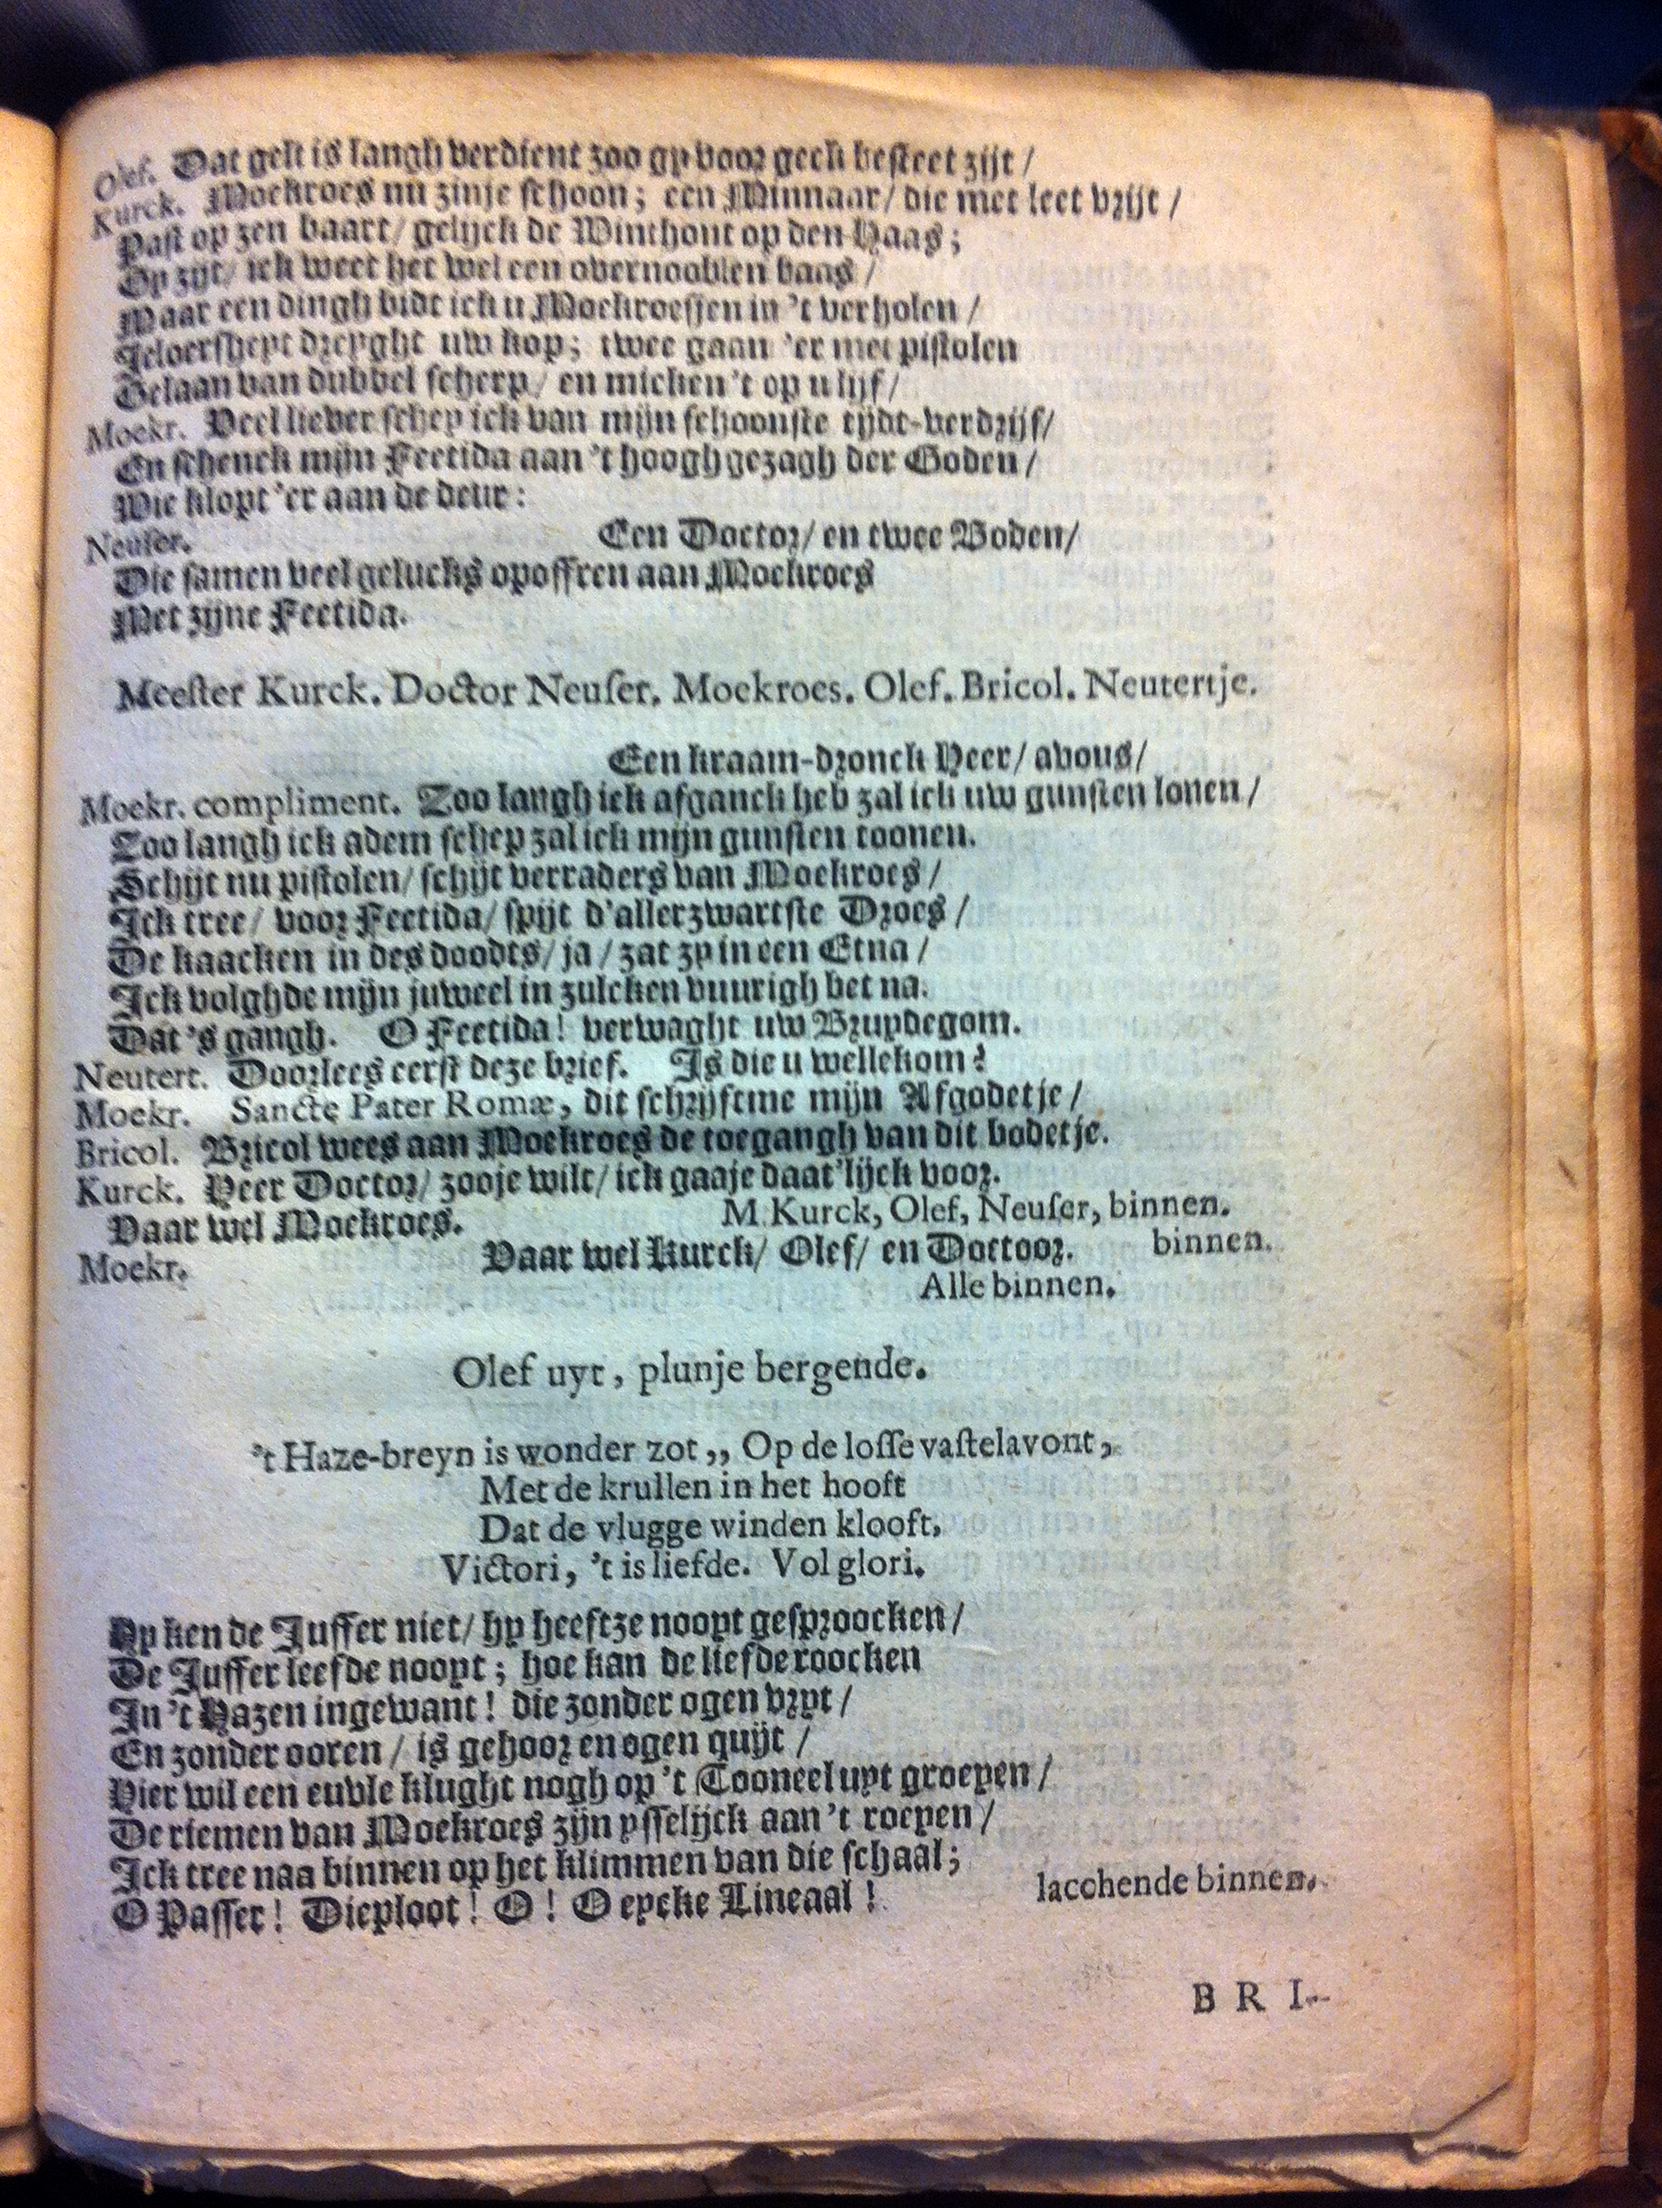 Olef. Dat gelt is langh verdient zoo gy voor geck besteet zijt /
Kurck. Moekroes nu zinje schoon; een Minnaar / die met leet vrijt /
Past op zen vaart / gelijck de Winthont op den Haas;
Op zijt / ick weet het wel een overnooblen baas /
Maar een dingh bidt ick u Moekroesjen in 't verholen /
Jeloersheyt dreyght uw kop; twee gaan 'er met pistolen
Gelaan van dubbel scherp / en micken 't op u lijf /
Moekr. Veel liever schep ick van mijn schoonste tijdt-verdrijf /
En schenck mijn Feetida aan 't hoogh gezagh der Goden /
Wie klopt 'er aan de deur:
Neuser. Een Doctor / en twee Boden /
Die samen veel gelucks opoffren aan Moekroes
Met zijne Feetida.
Meester Kurck. Doctor Neuser. Moekroes. Olef. Bricol. Neutertje.
Een kraam-dronck Heer / avous /
Moekr. compliment. Zoo langh ick afganck heb zal ick uw gunsten lonen /
Zoo langh ick adem schep zal ick mijn gunsten toonen.
Schijt nu pistolen / schijt verraders van Moekroes /
Ick tree / voor Feetida / spijt d'allerzwartste Droes /
De kaacken in des doodts / ja / zat zy in een Etna /
Ick volghde mijn juweel in zulcken vuurigh bet na.
Dat 's gangh. O Feetida! verwaght uw Bruydegom.
Neutert. Doorlees eerst deze brief. Is die u wellekom?
Moekr. Sancte Pater Romæ, dit schrijftme mijn Afgodetje /
Bricol. Bricol wees aan Moekroes de toegangh van dit bodetje.
Kurck. Heer Doctor / zooje wilt / ick gaaje daat'lijck voor.
Vaar wel Moekroes. M. Kurck, Olef, Neuser, binnen.
Moekr. Vaar wel Kurck / Olef / en Doctoor. binnen.
Alle binnen.
Olef uyt, plunje bergende.
't Haze-breyn is wonder zot,, Op de losse vastelavont,
Met de krullen in het hooft
Dat de vlugge winden klooft,
Victori, 't is liefde. Vol glori.
Hy ken de Juffer niet / hy heeftze nooyt gesproocken /
De Juffer leefde nooyt; hoe kan de liefde roocken
In 't Hazen ingewant! die zonder ogen vryt /
En zonder ooren / is gehoor en ogen quijt /
Hier wil een euvle klught nogh op 't Tooneel uyt groeyen /
De riemen van Moekroes zijn ysselijck aan 't roeyen /
Ick tree naa binnen op het klimmen van die schaal;
O Passer! Dieploot! O! O eycke Lineaal! lacchende binnen.
B R I-